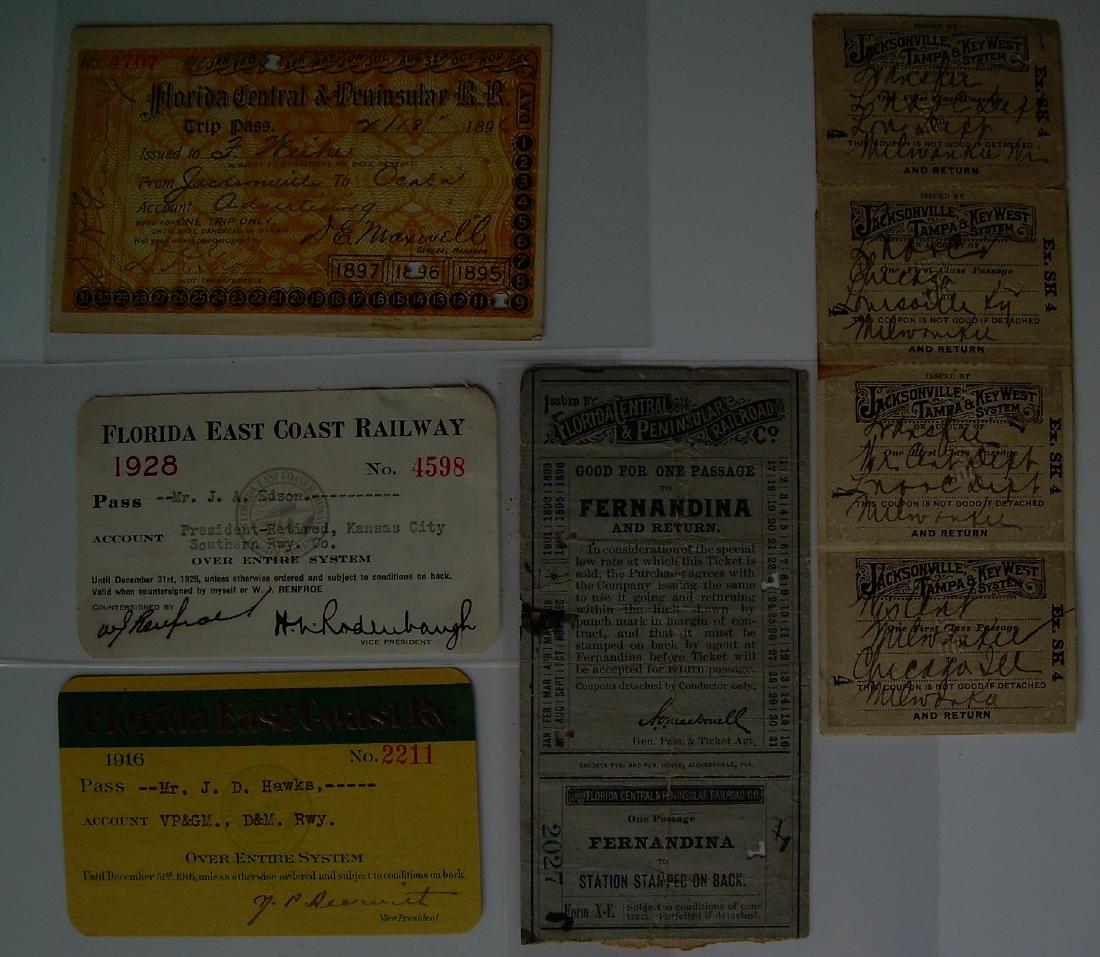 No. 4707
JAN FEB APR MAY JUN JUL AUG SEP OCT NOV DEC
Florida Central & Peninsular R.R.
Trip Pass. 2/18 1896
Issued to F. Weihe
SUBJECT TO CONDITIONS ON BACK HEREOF
From Jacksonville To Ocala
Account Advertising
GOOD FOR ONE TRIP ONLY,
UNTIL DATE CANCELED IN MARGIN.
Not good unless countersigned by
D.E. Maxwell
GENERAL MANAGER
NOT TRANSFERABLE.
1897 1896 1895
DAY 1 2 3 4 5 6 7 8 9
31 30 29 28 27 26 25 24 23 22 21 20 19 18 17 16 15 14 13 12 11
FLORIDA EAST COAST RAILWAY
1928 No. 4598
Pass --Mr. J. A. Edson.----------
ACCOUNT President-Retired, Kansas City
Southern Rwy. Co.
OVER ENTIRE SYSTEM
Until December 31st, 1928, unless otherwise ordered and subject to conditions on back.
Valid when countersigned by myself or W. J. RENFROE
COUNTERSIGNED BY
W J Renfroe H. N. Rodenbaugh
VICE PRESIDENT
Florida East Coast Ry.
1916 No. 2211
Pass --Mr. J. D. Hawks,-----
ACCOUNT VP&GM., D&M. Rwy.
OVER ENTIRE SYSTEM
Until December 31st, 1916, unless otherwise ordered and subject to conditions on back
Vice President
ISSUED BY
FLORIDA CENTRAL & PENINSULAR RAILROAD Co.
GOOD FOR ONE PASSAGE
TO
FERNANDINA
AND RETURN.
In consideration of the special
low rate at which this Ticket is
sold, the Purchaser agrees with
the Company issuing the same
to use it going and returning
within the limit shown by
punch mark in margin of con-
tract, and that it must be
stamped on back by agent at
Fernandina before Ticket will
be accepted for return passage.
Coupons detached by Conductor only.
Gen. Pass. & Ticket Agt.
DACOSTA PTG. AND PUB. HOUSE, JACKSONVILLE, FLA.
FLORIDA CENTRAL & PENINSULAR RAILROAD CO.
One Passage
FERNANDINA
TO
STATION STAMPED ON BACK.
2027
Form X-E. Subject to conditions of con-
tract. Forfeited if detached.
ISSUED BY
JACKSONVILLE, TAMPA & KEY WEST SYSTEM
One First Class Passage
THIS COUPON IS NOT GOOD IF DETACHED
AND RETURN
Ex. SK 4
4
ISSUED BY
JACKSONVILLE, TAMPA & KEY WEST SYSTEM
ON ACCOUNT OF
One First Class Passage
Chicago
Louisville Ky
THIS COUPON IS NOT GOOD IF DETACHED
Milwaukie
AND RETURN
Ex. SK 4
4
ISSUED BY
JACKSONVILLE, TAMPA & KEY WEST SYSTEM
ON ACCOUNT OF
One First Class Passage
THIS COUPON IS NOT GOOD IF DETACHED
Milwaukee
AND RETURN
Ex. SK 4
4
JACKSONVILLE, TAMPA & KEY WEST SYSTEM
One First Class Passage
Milwaukee
Chicago Ill
THIS COUPON IS NOT GOOD IF DETACHED
AND RETURN
Ex. SK 4
4